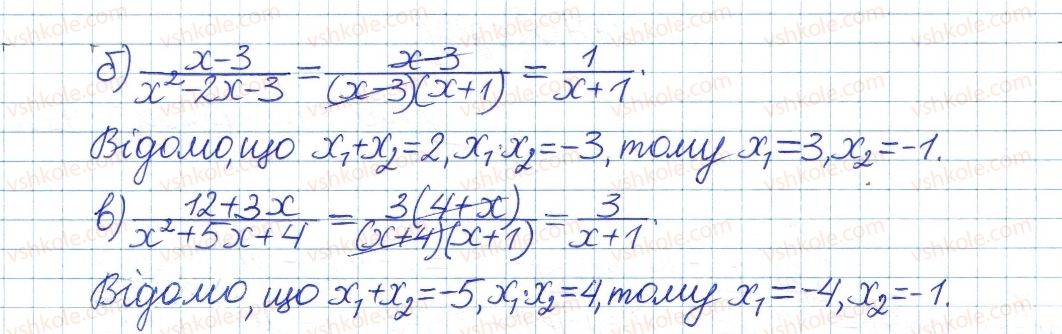 б) (x-3)/(x²-2x-3) = (x-3)/((x-3)(x+1)) = 1/(x+1).
Відомо, що x₁+x₂=2, x₁·x₂=-3, тому x₁=3, x₂=-1.
в) (12+3x)/(x²+5x+4) = 3(4+x)/((x+4)(x+1)) = 3/(x+1).
Відомо, що x₁+x₂=-5, x₁·x₂=4, тому x₁=-4, x₂=-1.